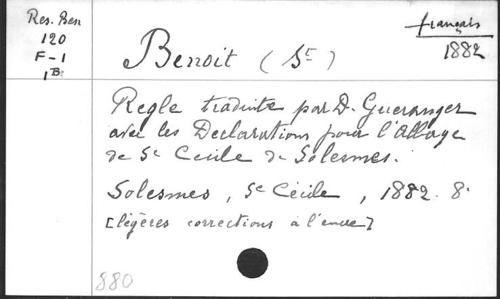 Res. Ben
120
F-1
1B
français
1882
Benoit (St)
Regle traduite par D. Gueranger
avec les Declarations pour l'Abbaye
de Ste Cecile de Solesmes.
Solesmes, Ste Cécile, 1882. 8°
[légères corrections à l'encre]
880